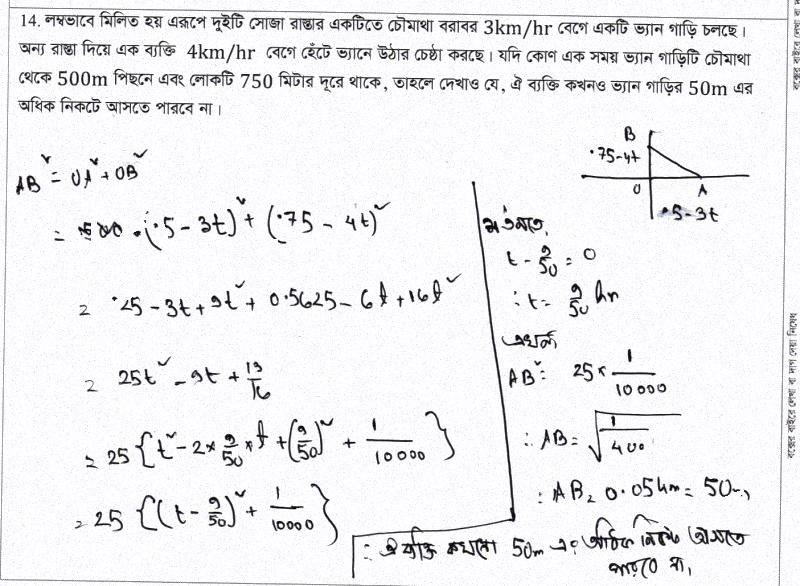 14. লম্বভাবে মিলিত হয় এরূপে দুইটি সোজা রাস্তার একটিতে চৌমাথা বরাবর 3km/hr বেগে একটি ভ্যান গাড়ি চলছে।
অন্য রাস্তা দিয়ে এক ব্যক্তি 4km/hr বেগে হেঁটে ভ্যানে উঠার চেষ্ঠা করছে। যদি কোণ এক সময় ভ্যান গাড়িটি চৌমাথা
থেকে 500m পিছনে এবং লোকটি 750 মিটার দূরে থাকে, তাহলে দেখাও যে, ঐ ব্যক্তি কখনও ভ্যান গাড়ির 50m এর
অধিক নিকটে আসতে পারবে না।
AB² = OA² + OB²
= (·5 - 3t)² + (·75 - 4t)²
= ·25 - 3t + 9t² + 0.5625 - 6t + 16t²
= 25t² - 9t + 13/16
= 25 {t² - 2×9/50×t + (9/50)² + 1/10000}
= 25 {(t - 9/50)² + 1/10000}
B
·75-4t
O A
·5-3t
শর্তমতে,
t - 9/50 = 0
∴ t = 9/50 hr
এখন
AB² = 25 × 1/10000
∴ AB = √1/400
∴ AB = 0.05km = 50m
∴ ঐ ব্যক্তি কখনো 50m এর অধিক নিকটে আসতে
পারবে না,
বক্সের বাইরে লেখা বা দাগ দেয়া নিষেধ